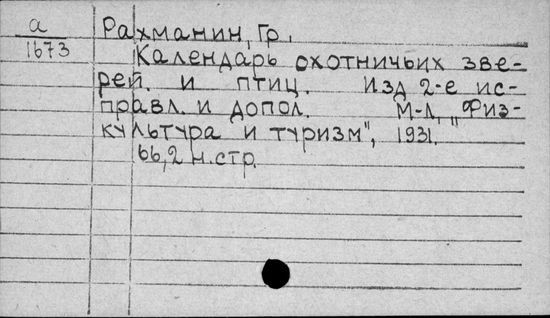 а
1673
Рахманин, Гр.
Календарь охотничьих зве-
рей. и птиц. Изд 2-е ис-
правл. и допол. М-Л, „Физ-
культура и туризм", 1931.
66,2 н.стр.